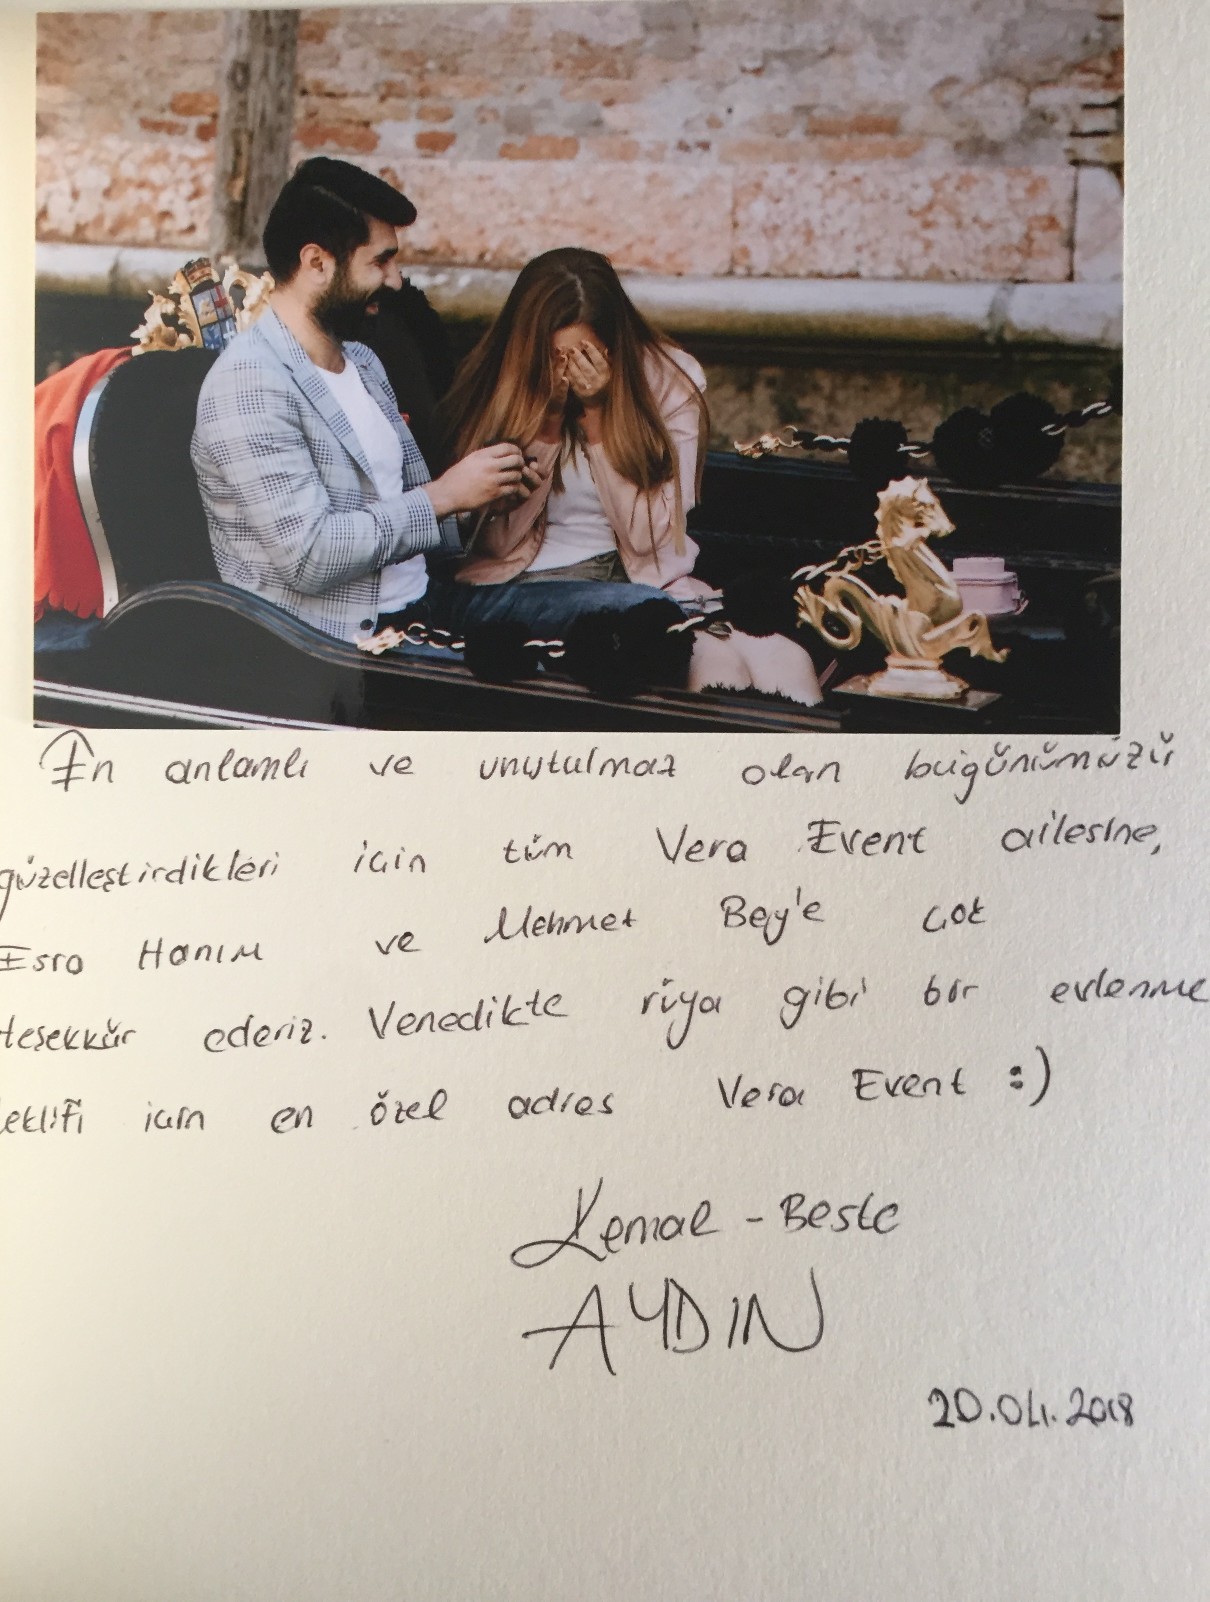 En anlamlı ve unutulmaz olan bugünümüzü
güzelleştirdikleri için tüm Vera Event ailesine,
Esra Hanım ve Mehmet Bey'e çok
teşekkür ederiz. Venedikte rüya gibi bir evlenme
teklifi için en özel adres Vera Event :)
Kemal - Beste
AYDIN
20.04.2018